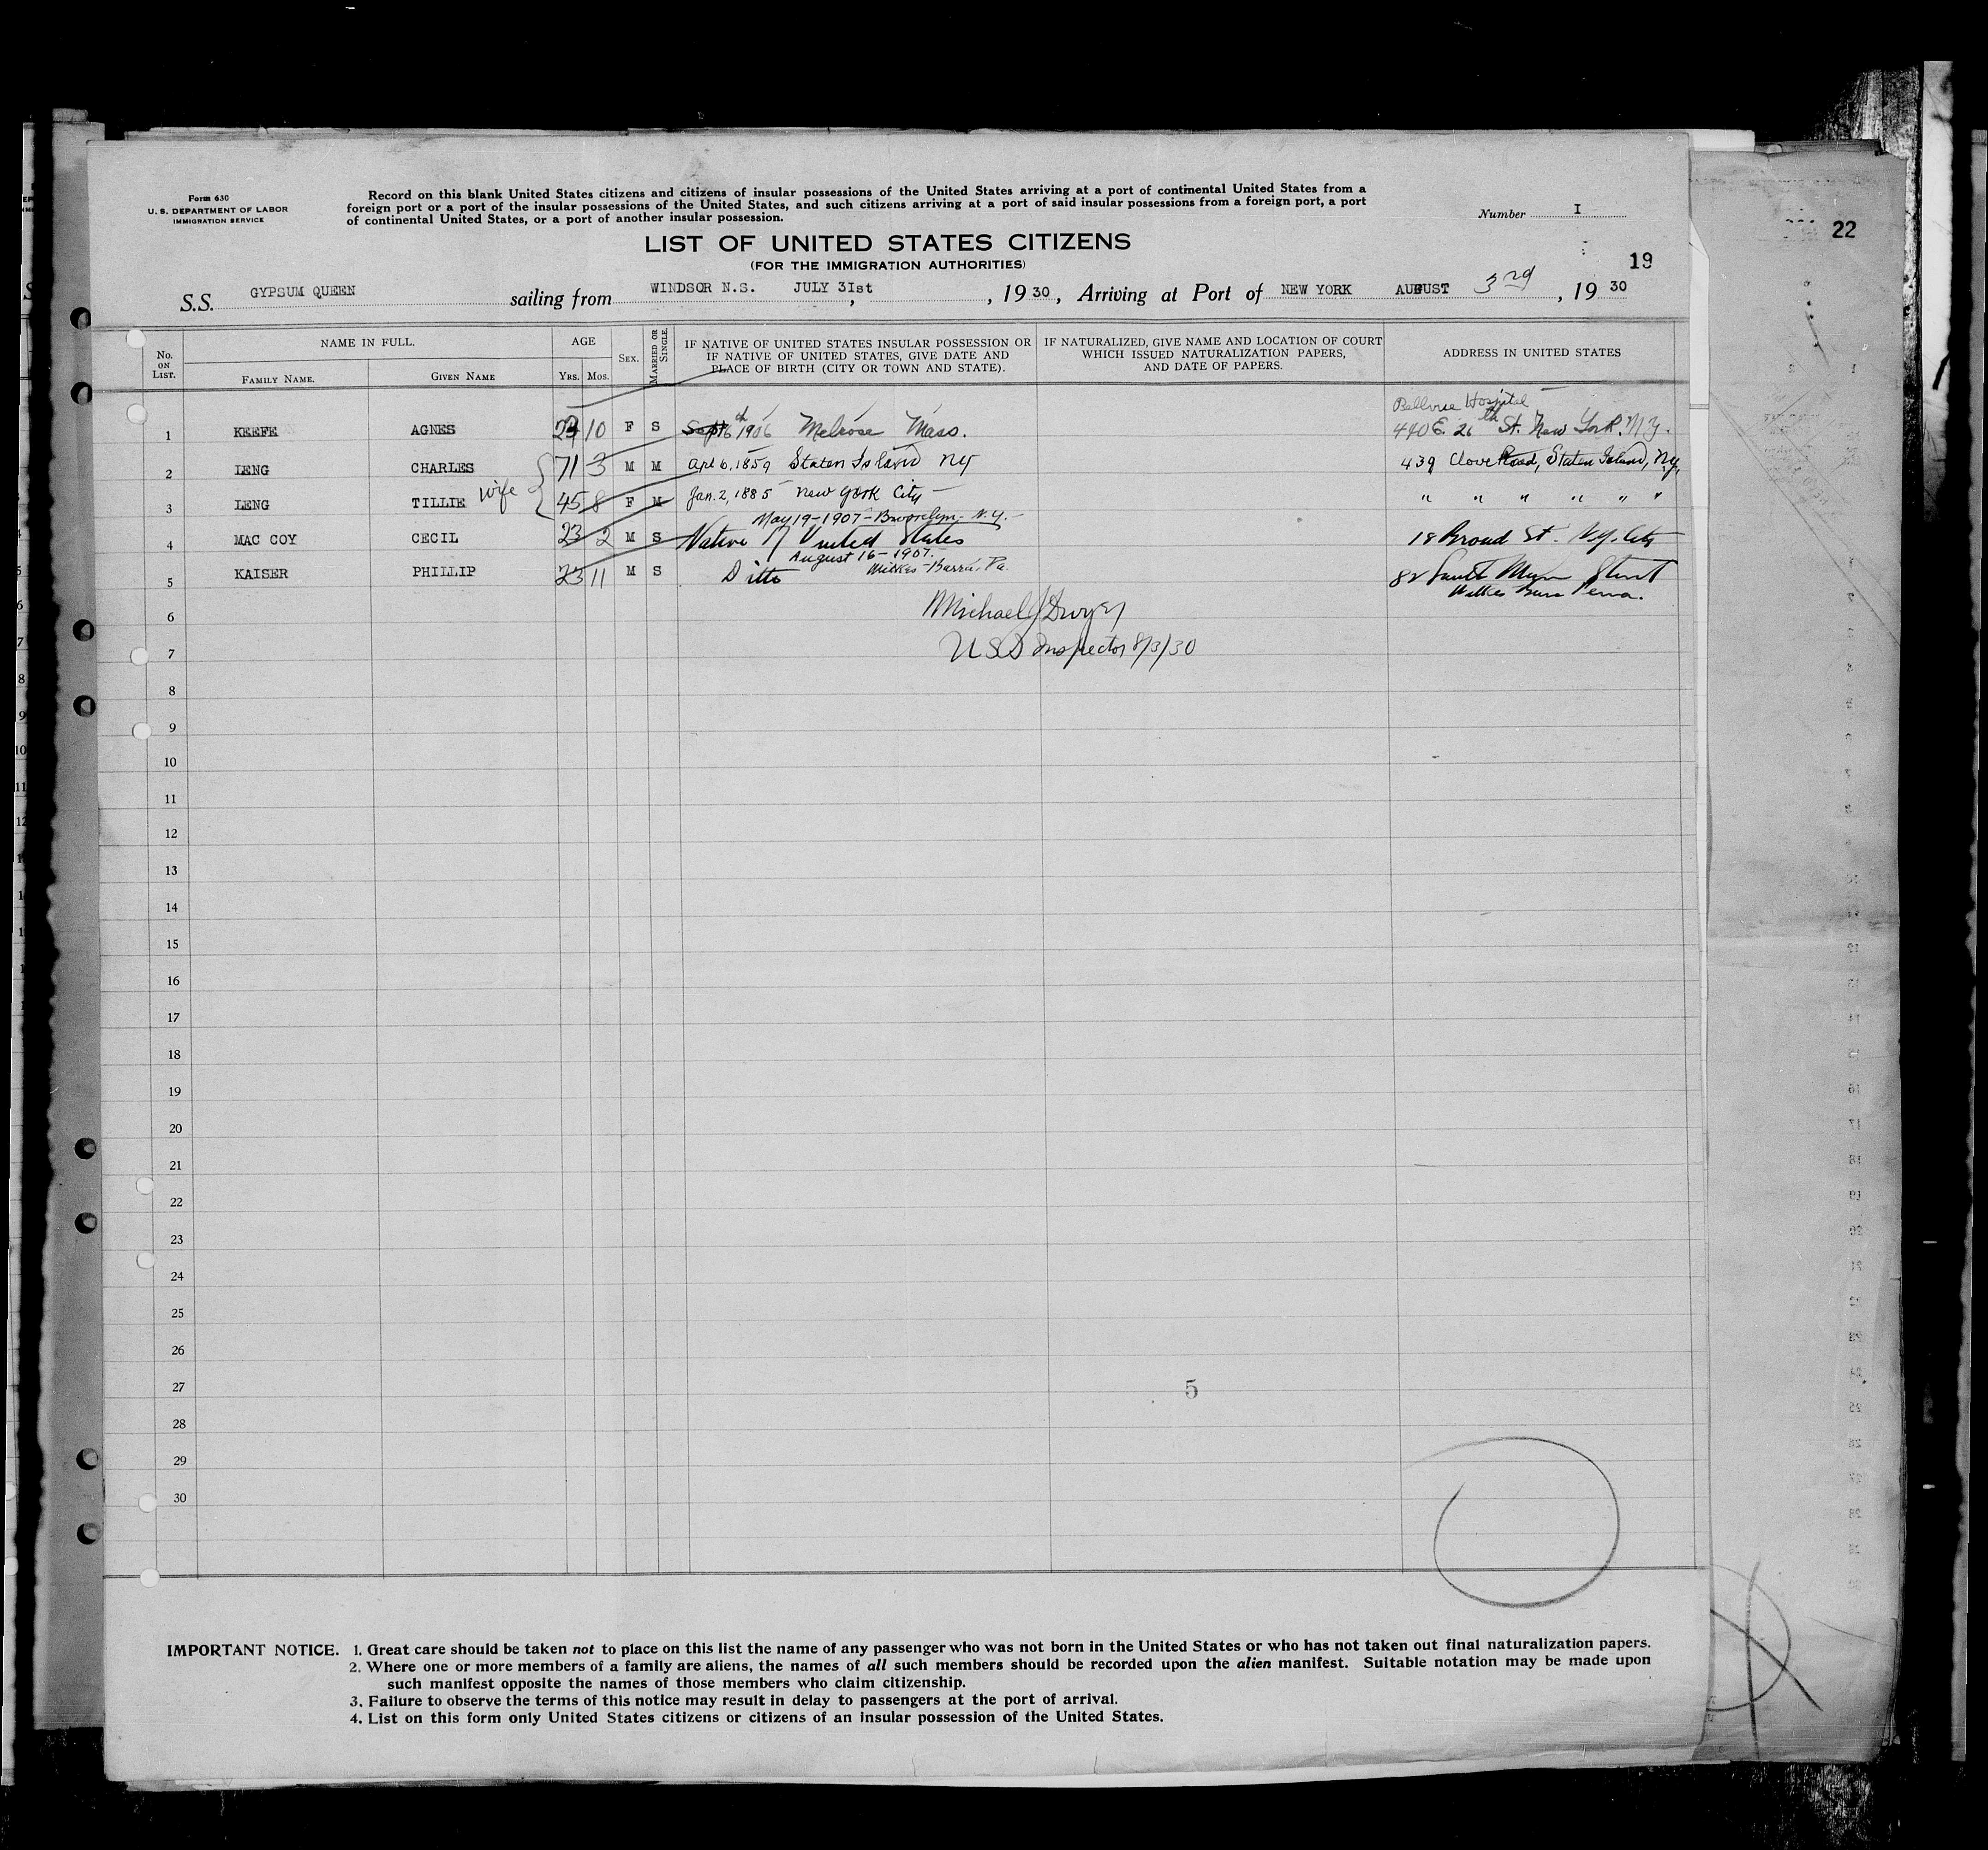 Form 630
U. S. DEPARTMENT OF LABOR
IMMIGRATION SERVICE
Record on this blank United States citizens and citizens of insular possessions of the United States arriving at a port of continental United States from a
foreign port or a port of the insular possessions of the United States, and such citizens arriving at a port of said insular possessions from a foreign port, a port
of continental United States, or a port of another insular possession.
Number I
22
LIST OF UNITED STATES CITIZENS
(FOR THE IMMIGRATION AUTHORITIES)
19
S.S. GYPSUM QUEEN sailing from WINDSOR N.S. JULY 3Ist, 1930, Arriving at Port of NEW YORK AUGUST 3rd, 1930
No. ON LIST. NAME IN FULL. AGE SEX. MARRIED OR SINGLE. IF NATIVE OF UNITED STATES INSULAR POSSESSION OR IF NATIVE OF UNITED STATES, GIVE DATE AND PLACE OF BIRTH (CITY OR TOWN AND STATE). IF NATURALIZED, GIVE NAME AND LOCATION OF COURT WHICH ISSUED NATURALIZATION PAPERS, AND DATE OF PAPERS. ADDRESS IN UNITED STATES
FAMILY NAME. GIVEN NAME YRS. MOS.
Bellvue Hospital
1 KEEFE AGNES 23 10 F S Sept 16th 1906 Melrose Mass. 440 E. 26th St. New York. N.Y.
2 LENG CHARLES 71 3 M M Apl 6, 1859 Staten Island NY 439 Clove Road, Staten Island, N.Y.
3 LENG TILLIE wife 45 8 F M Jan. 2, 1885 New York City " " " " " "
May 19-1907-Brooklyn-N.Y.
4 MAC COY CECIL 23 2 M S Native of United States 18 Broad St. N.Y. City
August 16-1907-
Wilkes-Barre, Pa.
5 KAISER PHILLIP 23 11 M S Ditto 82 South Main Street
Wilkes Barre Penna.
6 Michael J Dwyer
7 U S Inspector 8/3/30
8
9
10
11
12
13
14
15
16
17
18
19
20
21
22
23
24
25
26
27 5
28
29
30
IMPORTANT NOTICE. 1. Great care should be taken not to place on this list the name of any passenger who was not born in the United States or who has not taken out final naturalization papers.
2. Where one or more members of a family are aliens, the names of all such members should be recorded upon the alien manifest. Suitable notation may be made upon
such manifest opposite the names of those members who claim citizenship.
3. Failure to observe the terms of this notice may result in delay to passengers at the port of arrival.
4. List on this form only United States citizens or citizens of an insular possession of the United States.